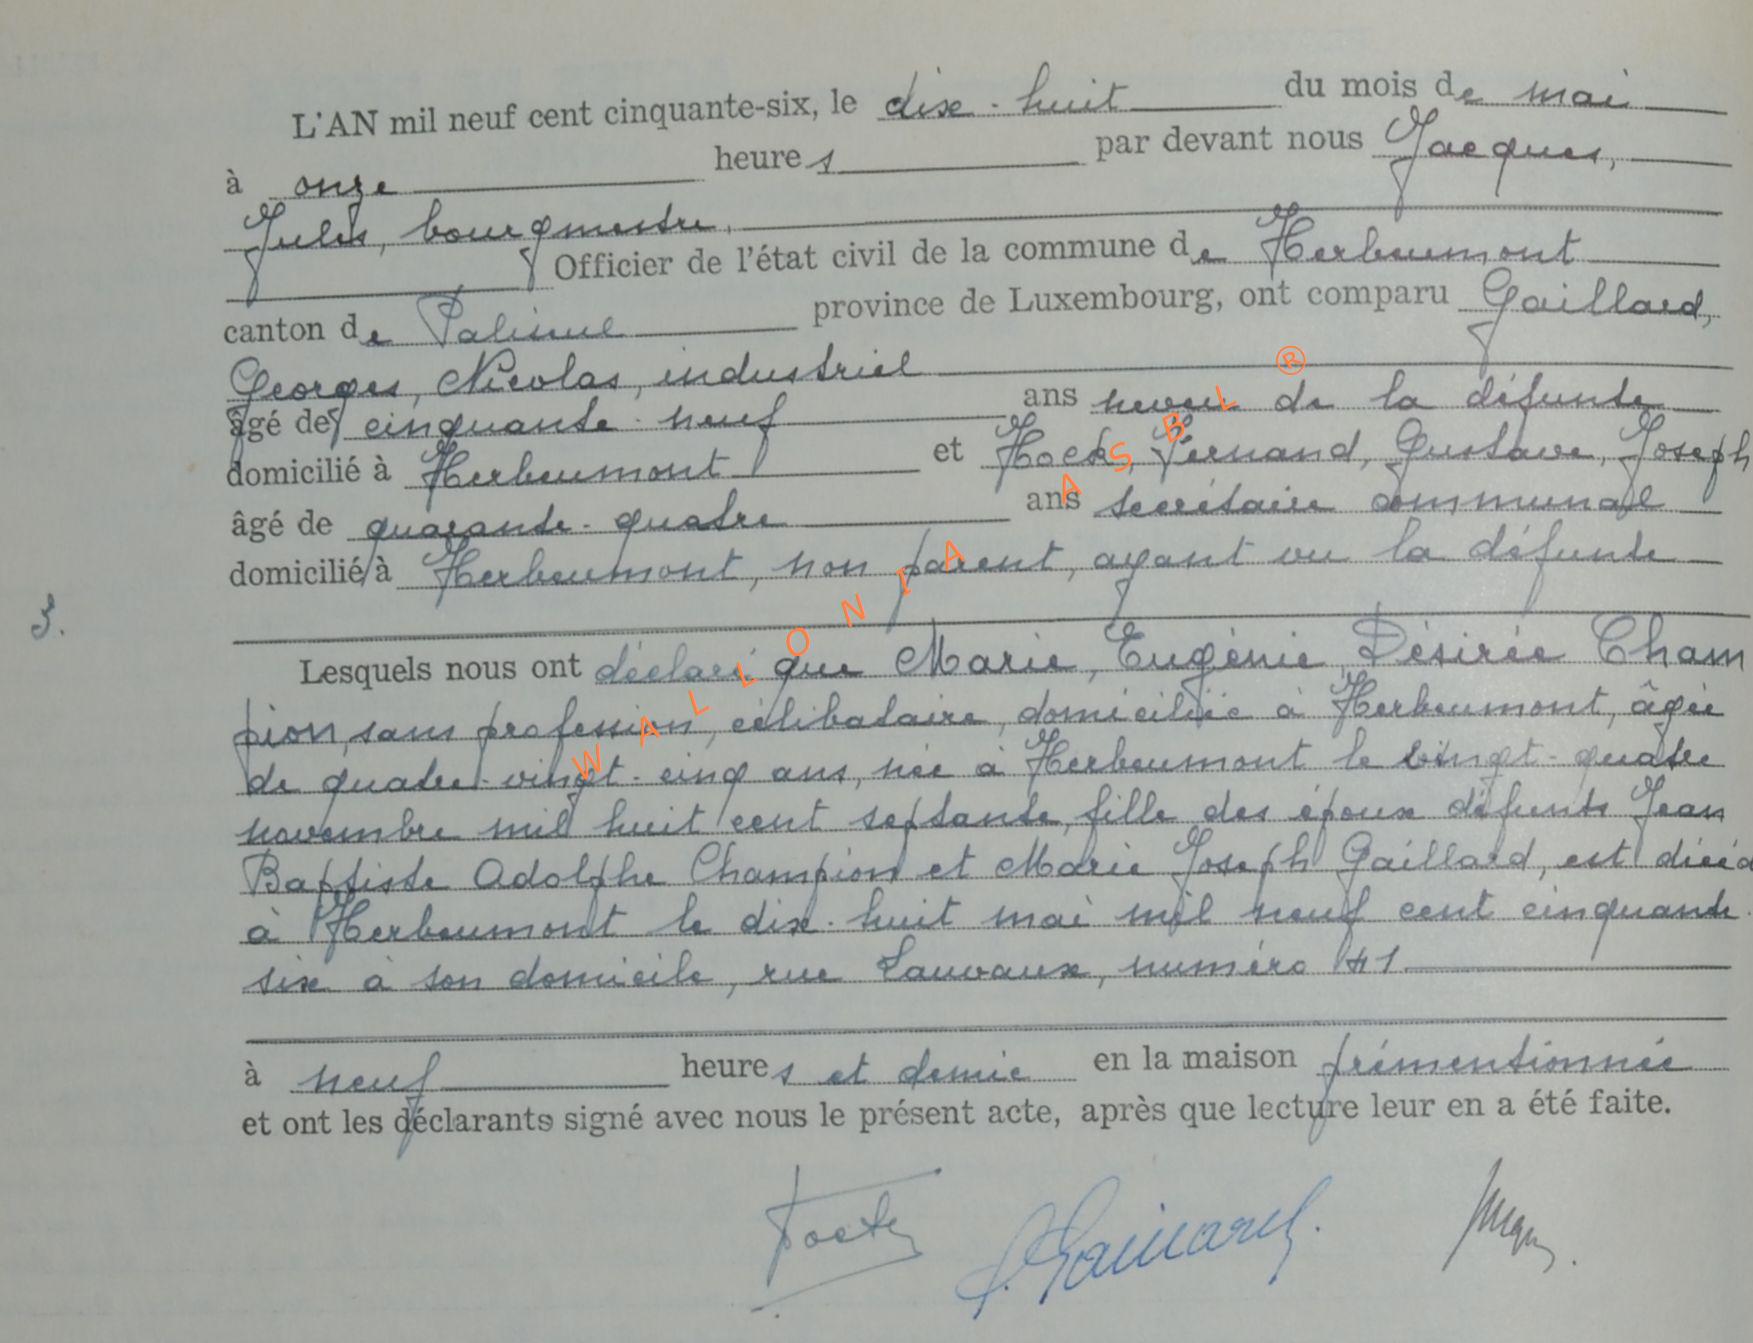 L'AN mil neuf cent cinquante-six, le dix-huit du mois de mai
à onze heures par devant nous Jacques,
Jules, bourgmestre,
Officier de l'état civil de la commune de Herbeumont
canton de Paliseul province de Luxembourg, ont comparu Gaillard,
Georges, Nicolas, industriel
âgé de cinquante-neuf ans neveu de la défunte
domicilié à Herbeumont et Fernand, Gustave, Joseph
âgé de quarante-quatre ans secrétaire communal
domicilié à Herbeumont, non parent, ayant vu la défunte
3.
Lesquels nous ont déclaré que Marie, Eugénie, Désirée Cham
pion, sans profession, célibataire, domiciliée à Herbeumont, âgée
de quatre-vingt-cinq ans, née à Herbeumont le vingt-quatre
novembre mil huit cent septante, fille des époux défunts Jean
Baptiste Adolphe Champion et Marie Joseph Gaillard, est décéd
à Herbeumont le dix-huit mai mil neuf cent cinquante-
six à son domicile, rue Lauvaux, numéro 41
à neuf heures et demie en la maison prémentionnée
et ont les déclarants signé avec nous le présent acte, après que lecture leur en a été faite.
G. Gaillard.
WALLONIA ASBL ®